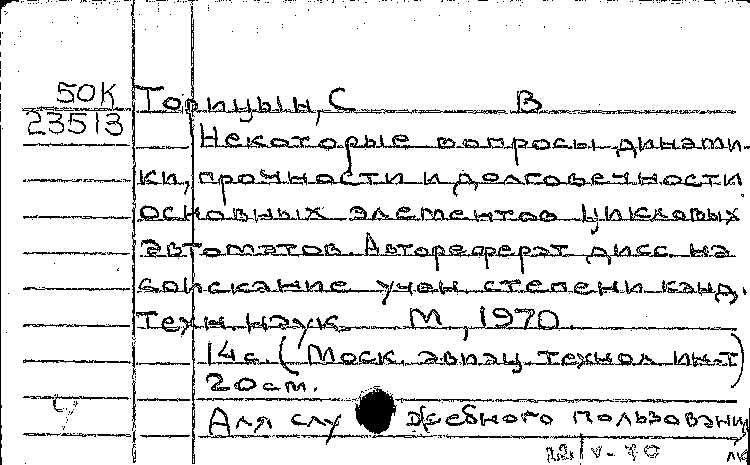 50К Торицын, С В
23513
Некоторые вопросы динами-
ки, прочности и долговечности
основных элементов цикловых
автоматов. Автореферат дисс. на
соискание учен. степени канд.
техн. наук. М, 1970.
14 с. (Моск. авиац. технол ин-т)
20 см.
Для служебного пользования
12/V-70